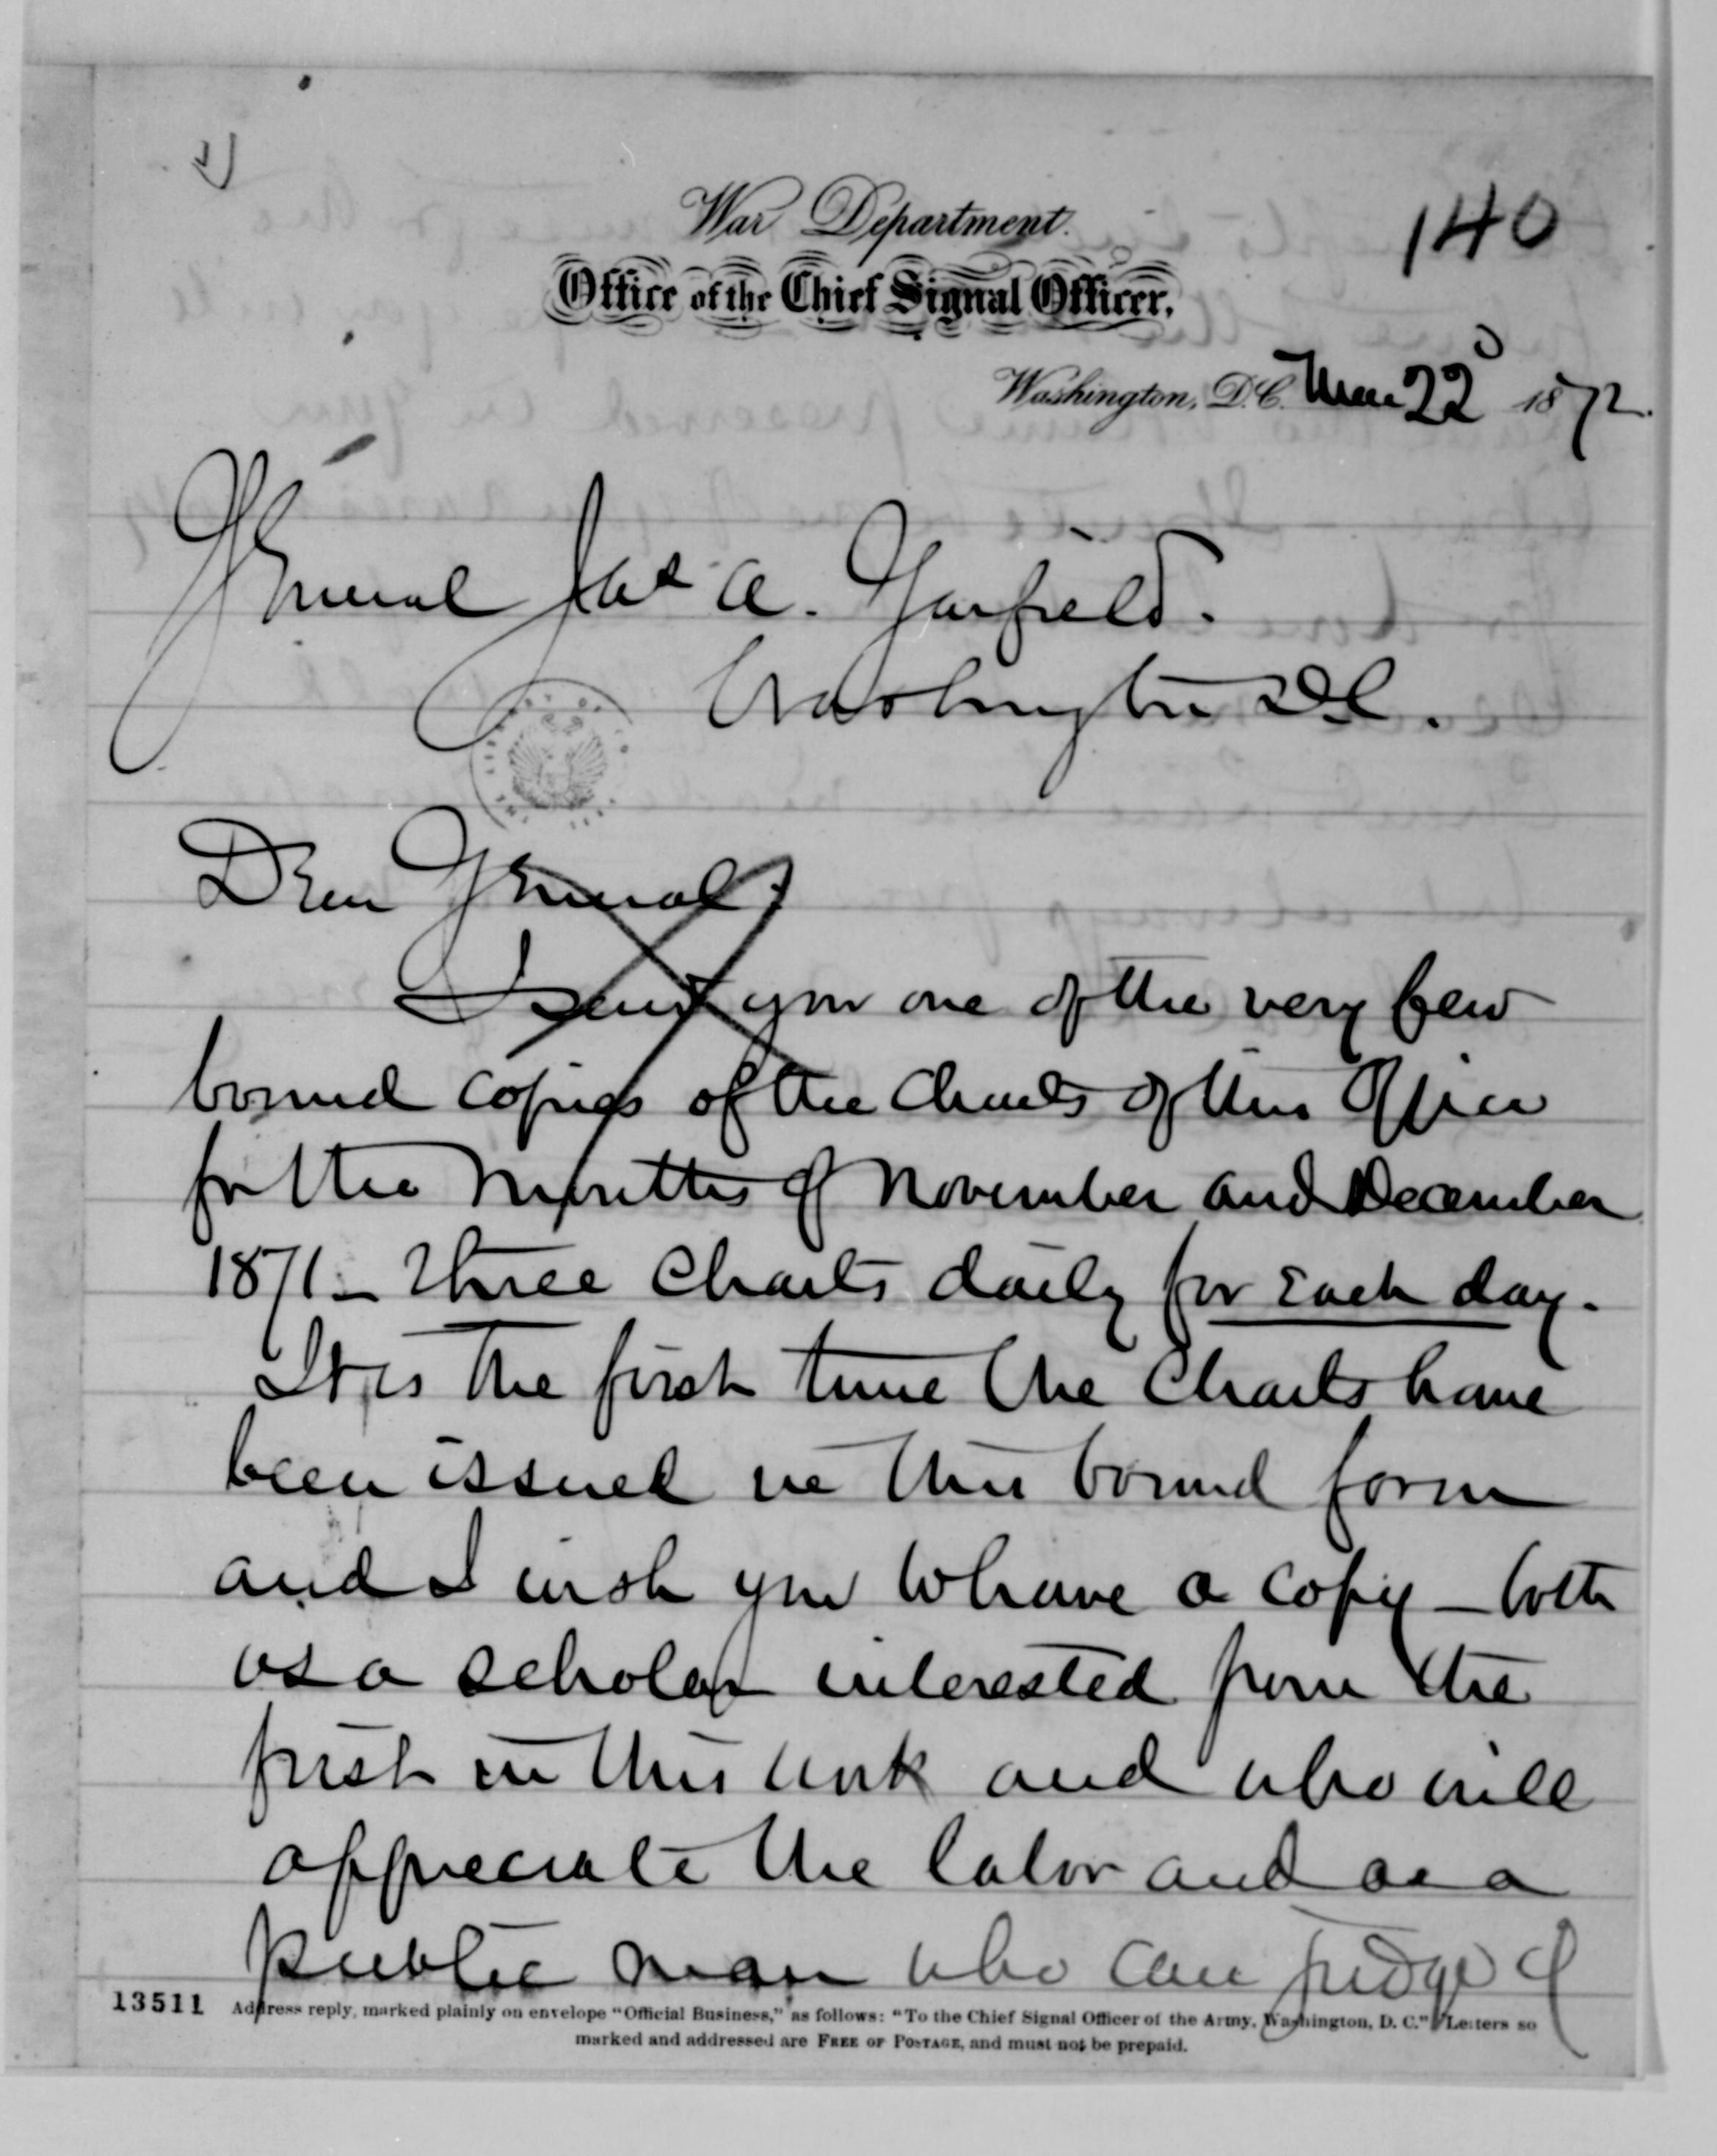 140
War Department.
Office of the Chief Signal Officer.
Washington, D.C. Mar 22d 1872.
General Jas A. Garfield.
Washington D.C.
Dear General:
I send you one of the very few
bound copies of the Charts of this Office
for the Months of November and December
1871 - Three Charts daily for Each day.
It is the first time the Charts have
been issued in this bound form
and I wish you to have a copy - both
as a scholar interested from the
first in this work and who will
appreciate the labor and as a
public man who can judge of
13511 Address reply, marked plainly on envelope "Official Business," as follows: "To the Chief Signal Officer of the Army, Washington, D. C." Letters so
marked and addressed are FREE OF POSTAGE, and must not be prepaid.